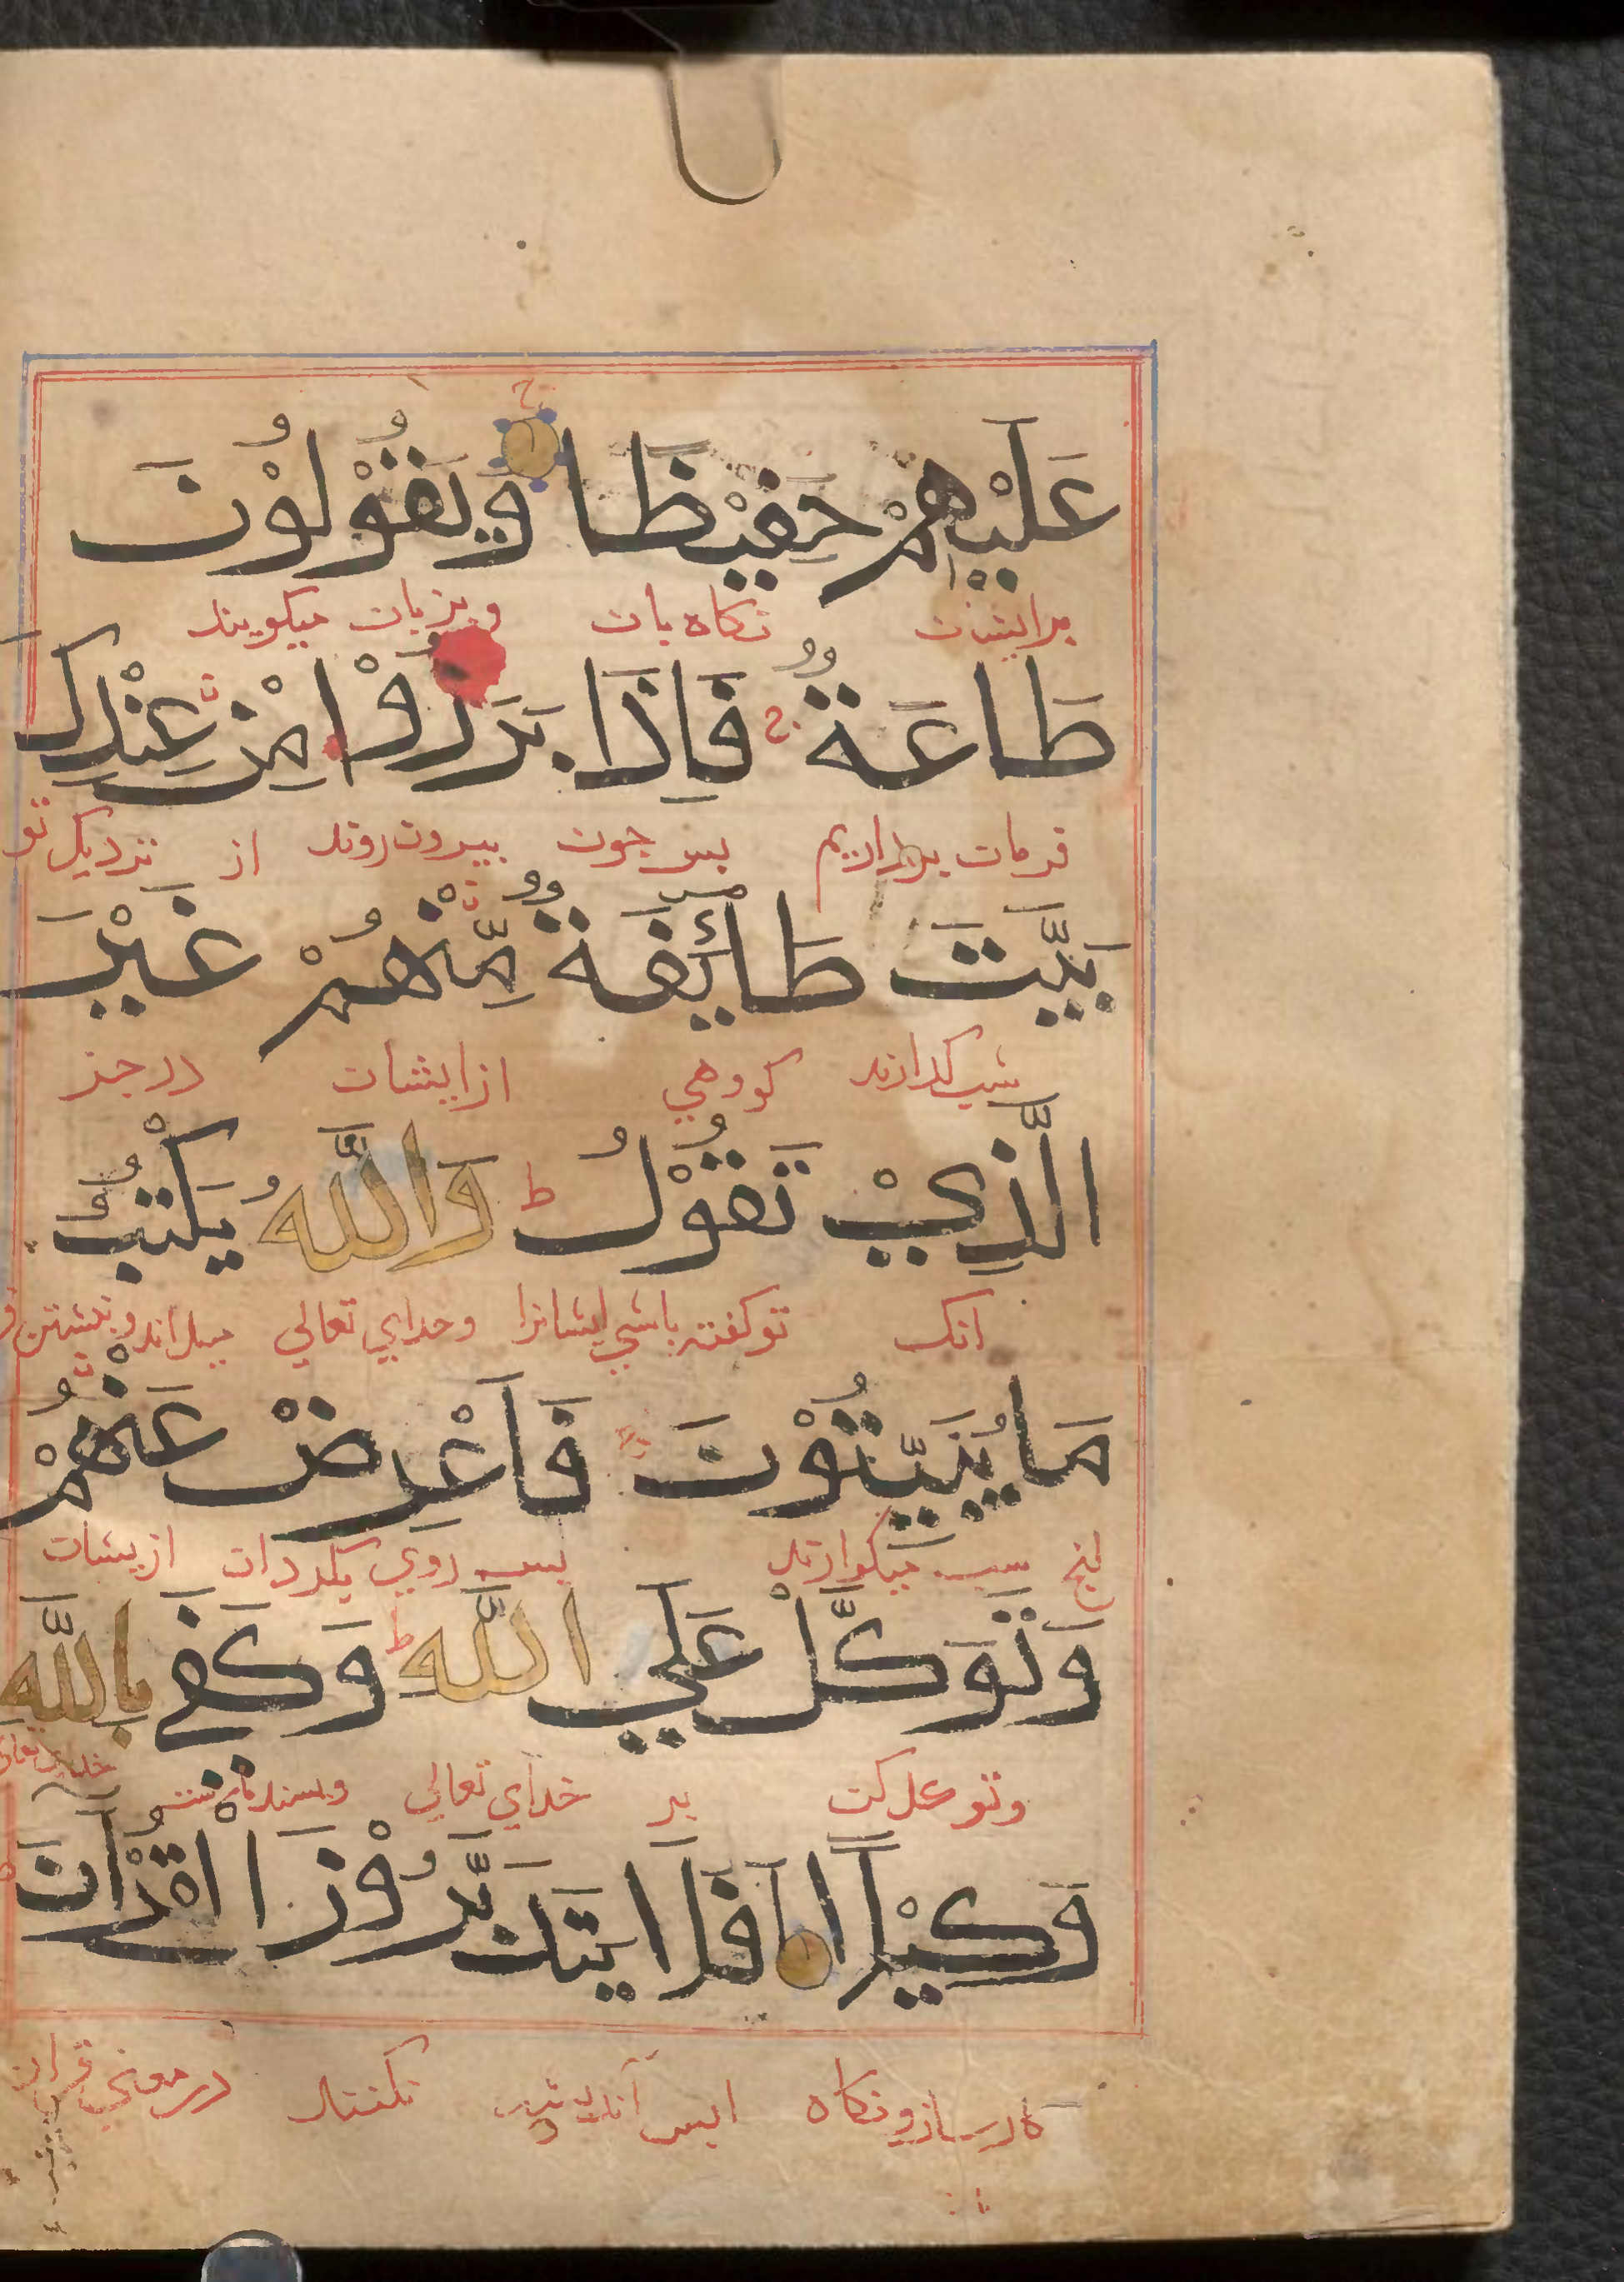 عَلَيْهِمْ حَفِيْظًا وَيَقُوْلُوْنَ
برایشان نکاه بان و بزبان میکویند
طَاعَةٌ فَاِذَا بَرَزُوْا مِنْ عِنْدِكَ
فرمان برداریم بس جون بیرون روند از نزدیک تو
بَيَّتَ طَائِفَةٌ مِّنْهُمْ غَيْرَ
شب کذارند کروهي ازایشان در جز
الَّذِيْ تَقُوْلُ وَاللّٰهُ يَكْتُبُ
انک تو کفته باشي ایشانرا وخدای تعالي میداند و نبشتن
مَا يُبَيِّتُوْنَ فَاَعْرِضْ عَنْهُمْ
انج شب میکذارند بس روي بکردان ازیشان
وَتَوَكَّلْ عَلَي اللّٰهِ وَكَفٰي بِاللّٰهِ
وتوکل کن بر خدای تعالي وبسنده خدای تعالی
وَكِيْلًا اَفَلَا يَتَدَبَّرُوْنَ الْقُرْآنَ
کارساز و نکاه ایس اندیشه نکنند در معني قران